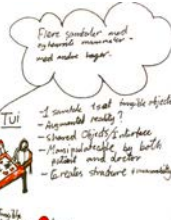 Flere samtaler med
mennesker -
med andre bager.
TUI
- 1 samtale text tangible objects
- Augmented reality?
- Shared Objects/Interface
- Manipulateable by both
patient and doctor
- Creates structure +